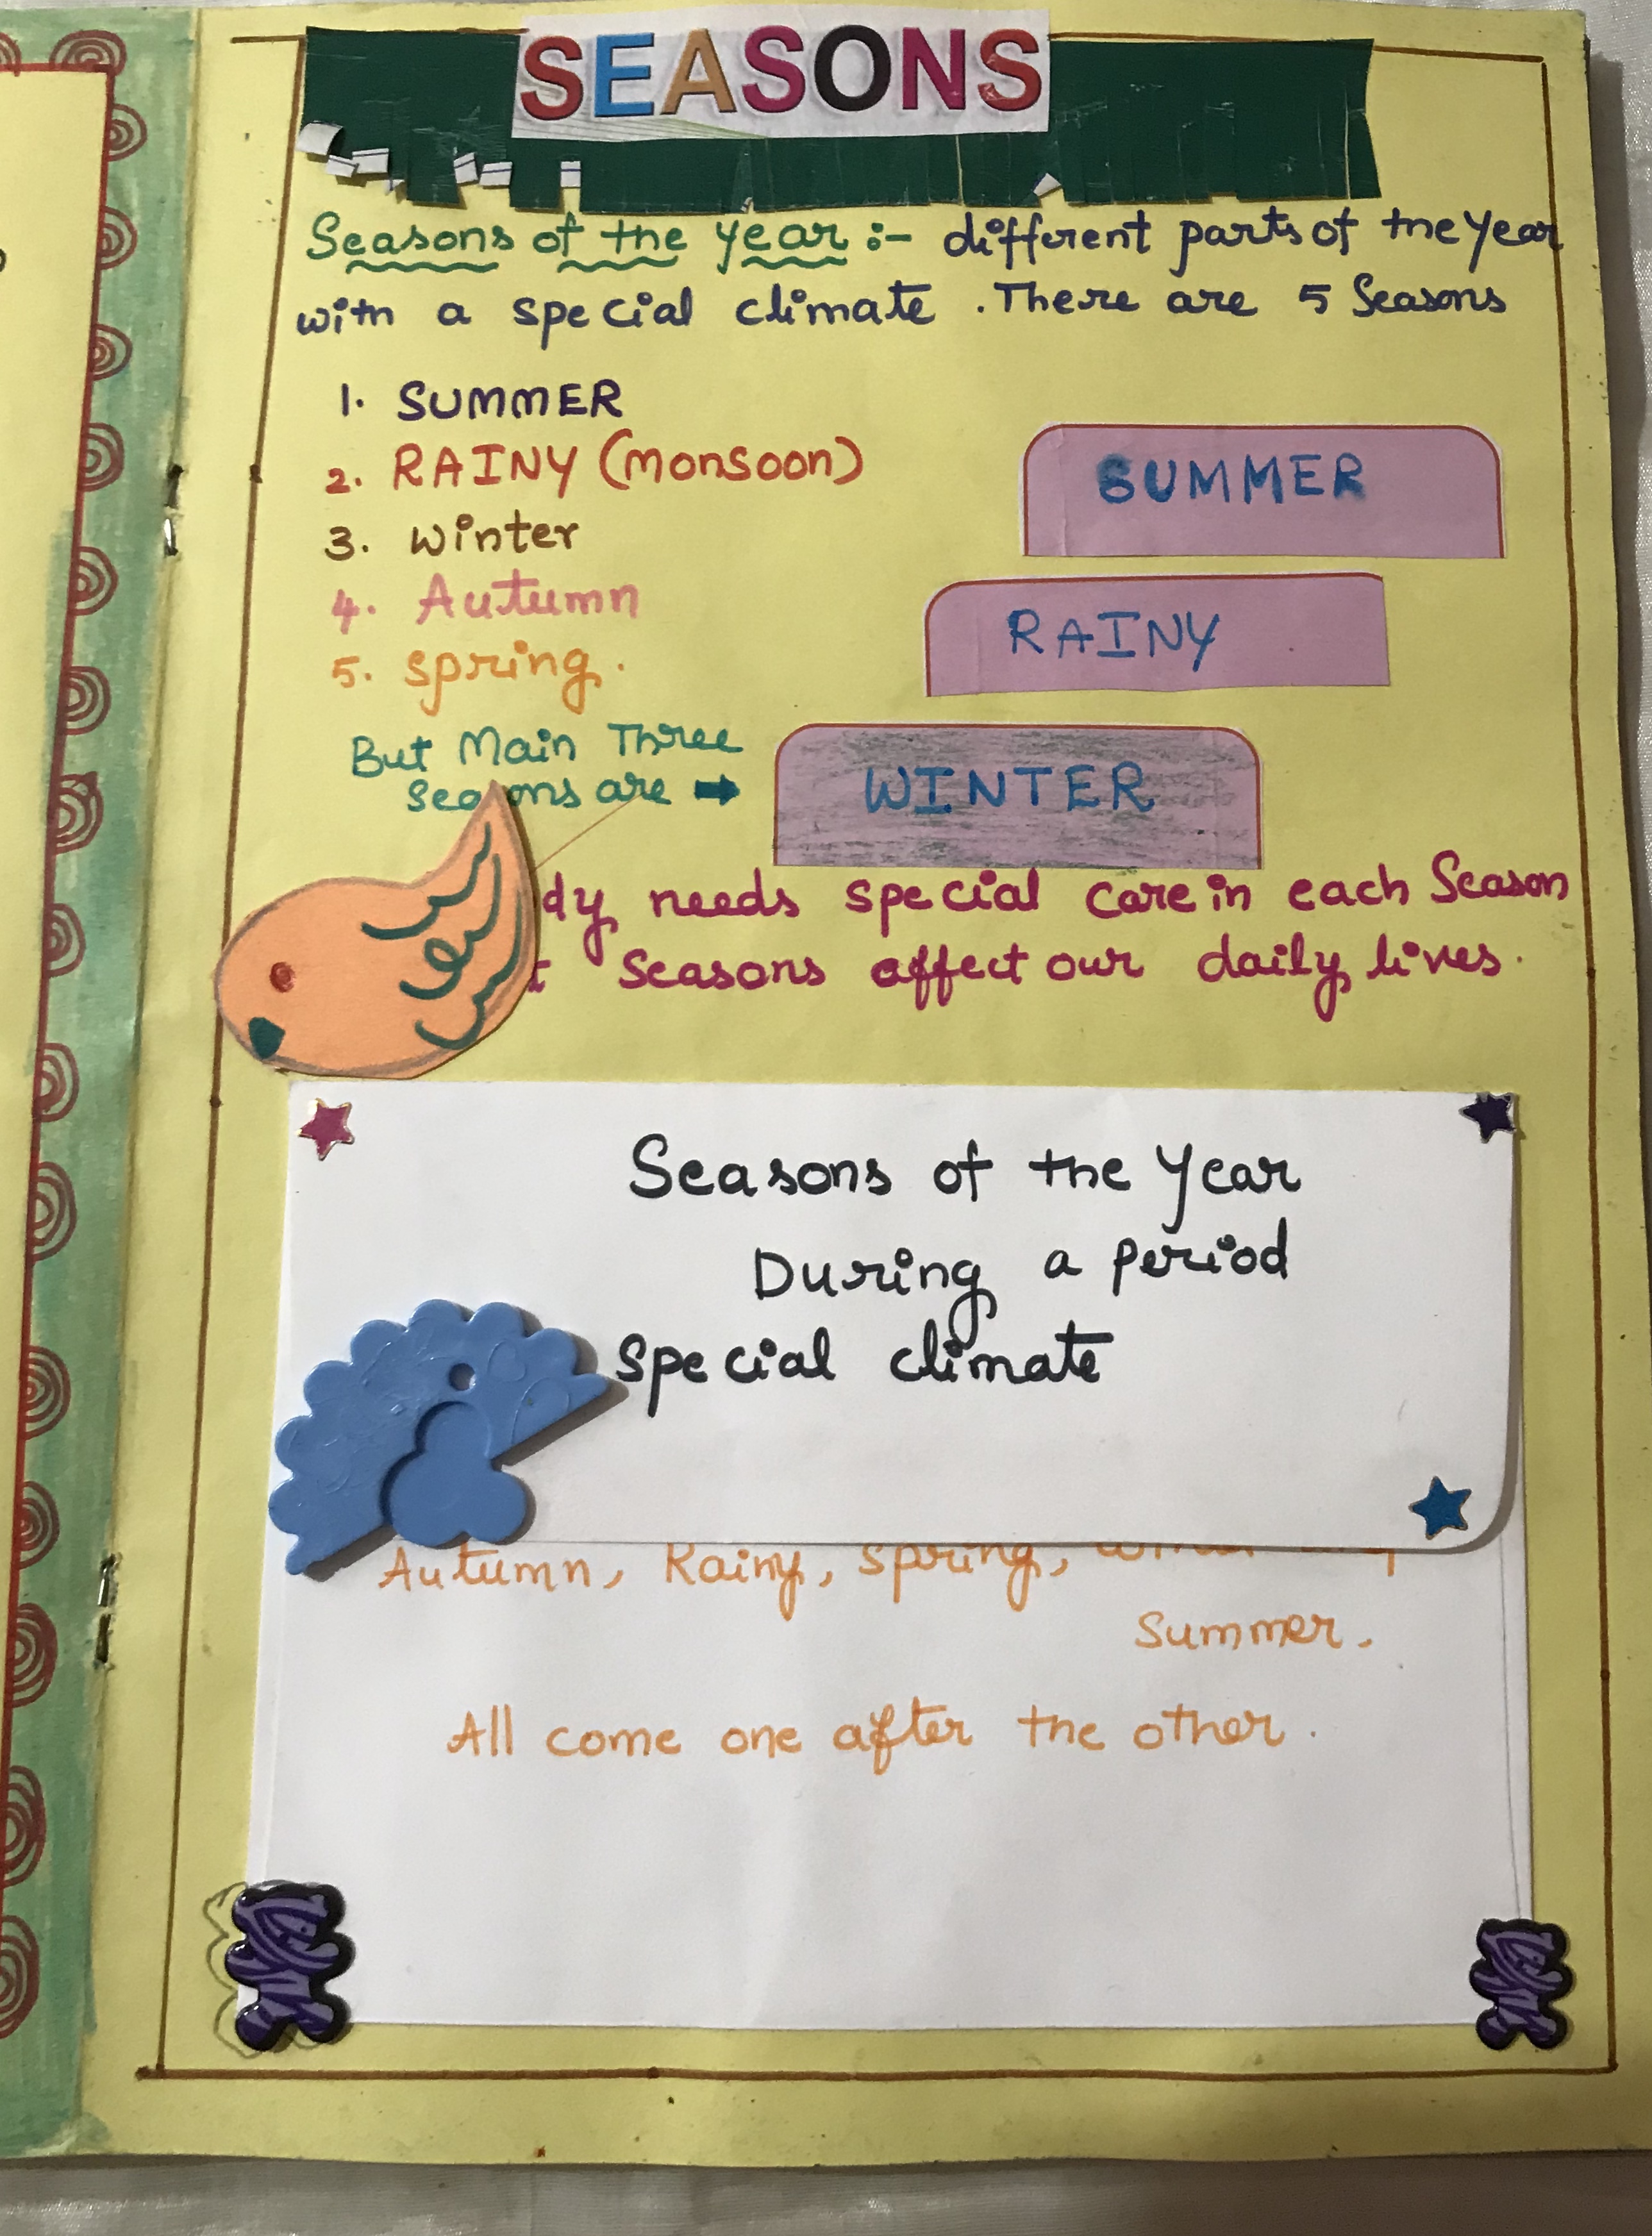 SEASONS
Seasons of the year :- different parts of the Year
with a special climate . There are 5 Seasons
1. SUMMER
2. RAINY (monsoon)
3. Winter
4. Autumn
5. spring.
SUMMER
RAINY
But Main Three
Seasons are →
WINTER
needs special care in each Season
Seasons affect our daily lives.
Seasons of the Year
During a period
special climate
Autumn, Rainy, spring,
Summer.
All come one after the other.